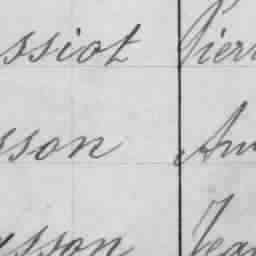 ssiot Pierr
sson An
sson Jea